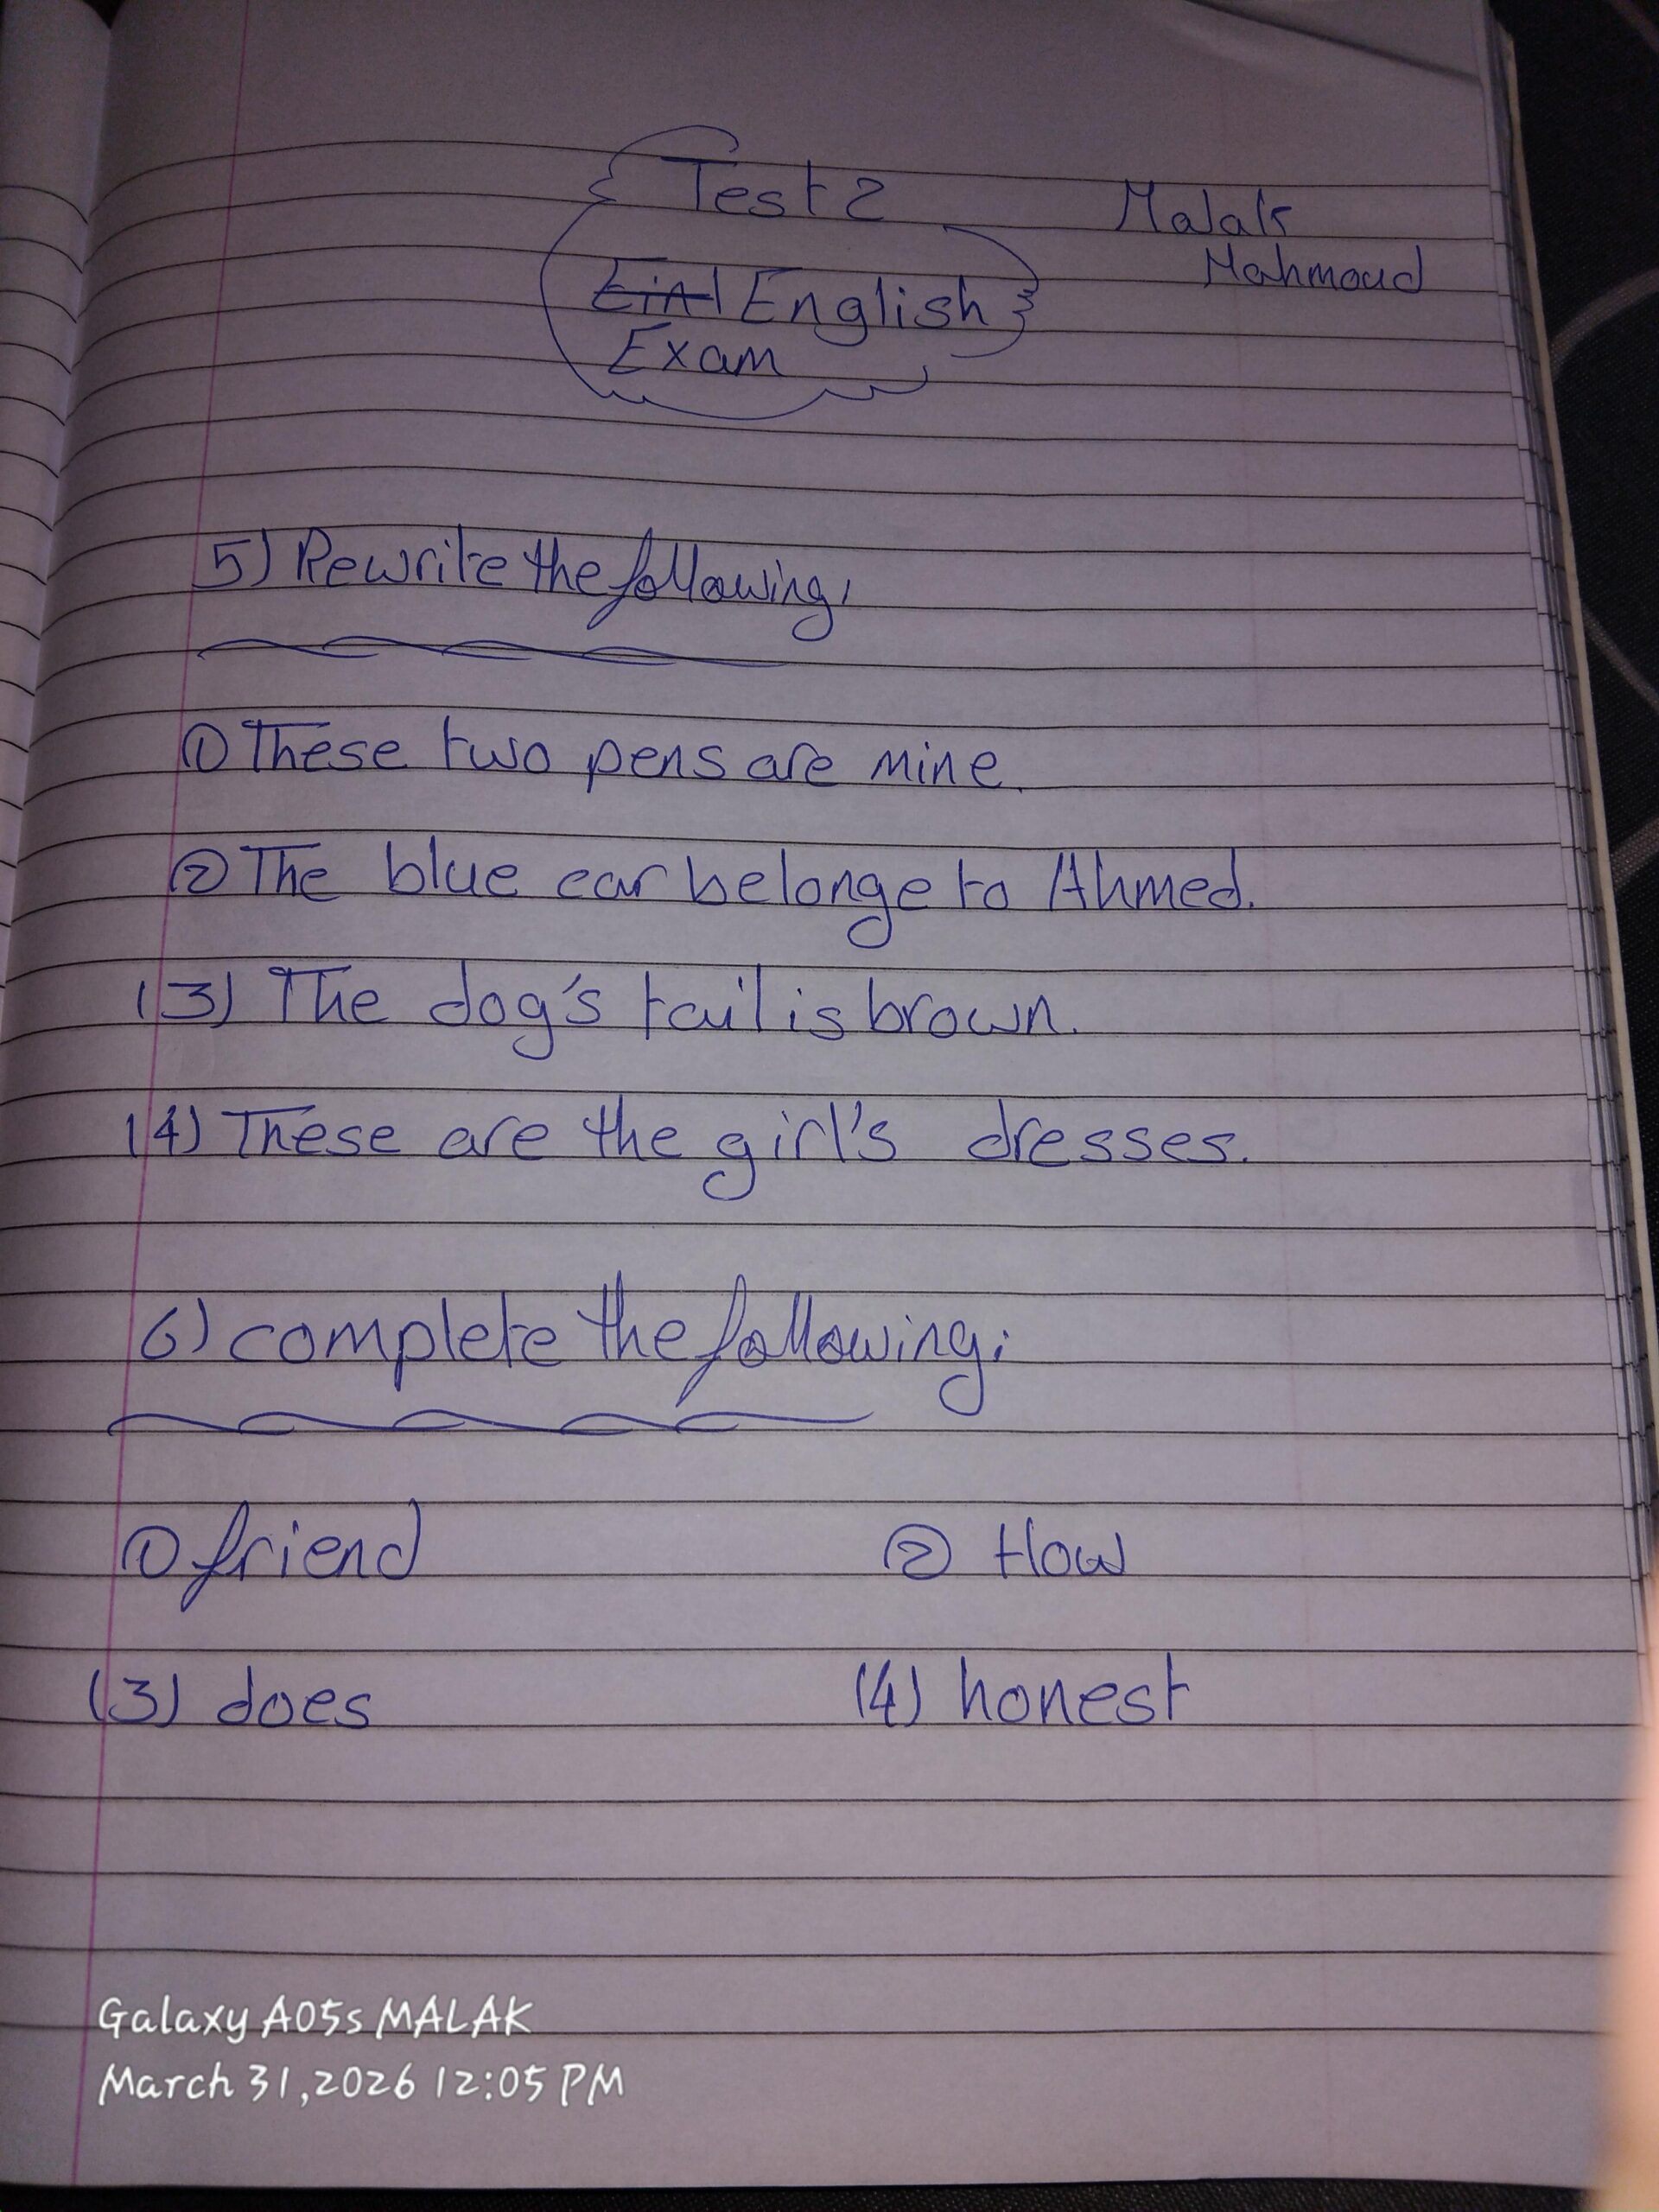 Test 2
Malak
Mahmoud
English
Exam
5) Rewrite the following,
① These two pens are mine.
② The blue car belonge to Ahmed.
(3) The dog's tail is brown.
(4) These are the girl's dresses.
6) complete the following:
① friend ② How
(3) does (4) honest
Galaxy A05s MALAK
March 31,2026 12:05 PM